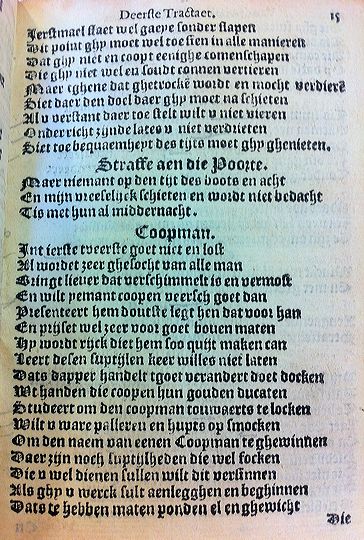 Deerste Tractaet. 15
Jerstmael slaet wel gaeye sonder slapen
Dit point ghy moet wel toe sien in alle manieren
Dat ghy niet en coopt eenighe comenschapen
Die ghy niet wel en soudt connen vertieren
Maer tghene dat ghetrockē wordt en mocht verdierē
Siet daer den doel daer ghy moet na schieten
Al v verstant daer toe stelt wilt v niet vieren
Onderricht zijnde lates v niet verdrieten
Siet toe bequaemheyt des tijts moet ghy ghenieten.
Straffe aen die Poorte.
Maer niemant op den tijt des boots en acht
En mijn vreeselijck schieten en wordt niet bedacht
Tis met hun al middernacht.
Coopman.
Int ierste tveerste goet niet en lost
Al wordet zeer ghesocht van alle man
Bringt liever dat verschimmelt is en vermost
En wilt yemant coopen veersch goet dan
Presenteert hem doutste legt hen dat voor han
En prijset wel zeer voot goet boven maten
Hy wordt rijck diet hem soo quijt maken can
Leert desen suptijlen keer willes niet laten
Dats dapper handelt tgoet verandert doet docken
Wt handen die coopen hun gouden ducaten
Studeert om den coopman touwaerts te locken
Wilt v ware palleren en huyts op smocken
Om den naem van eenen Coopman te ghewinnen
Daer zijn noch suptijlheden die wel focken
Die v wel dienen sullen wilt dit versinnen
Als ghy v werck sult aenlegghen en beghinnen
Dats te hebben maten ponden el en ghewicht
Die